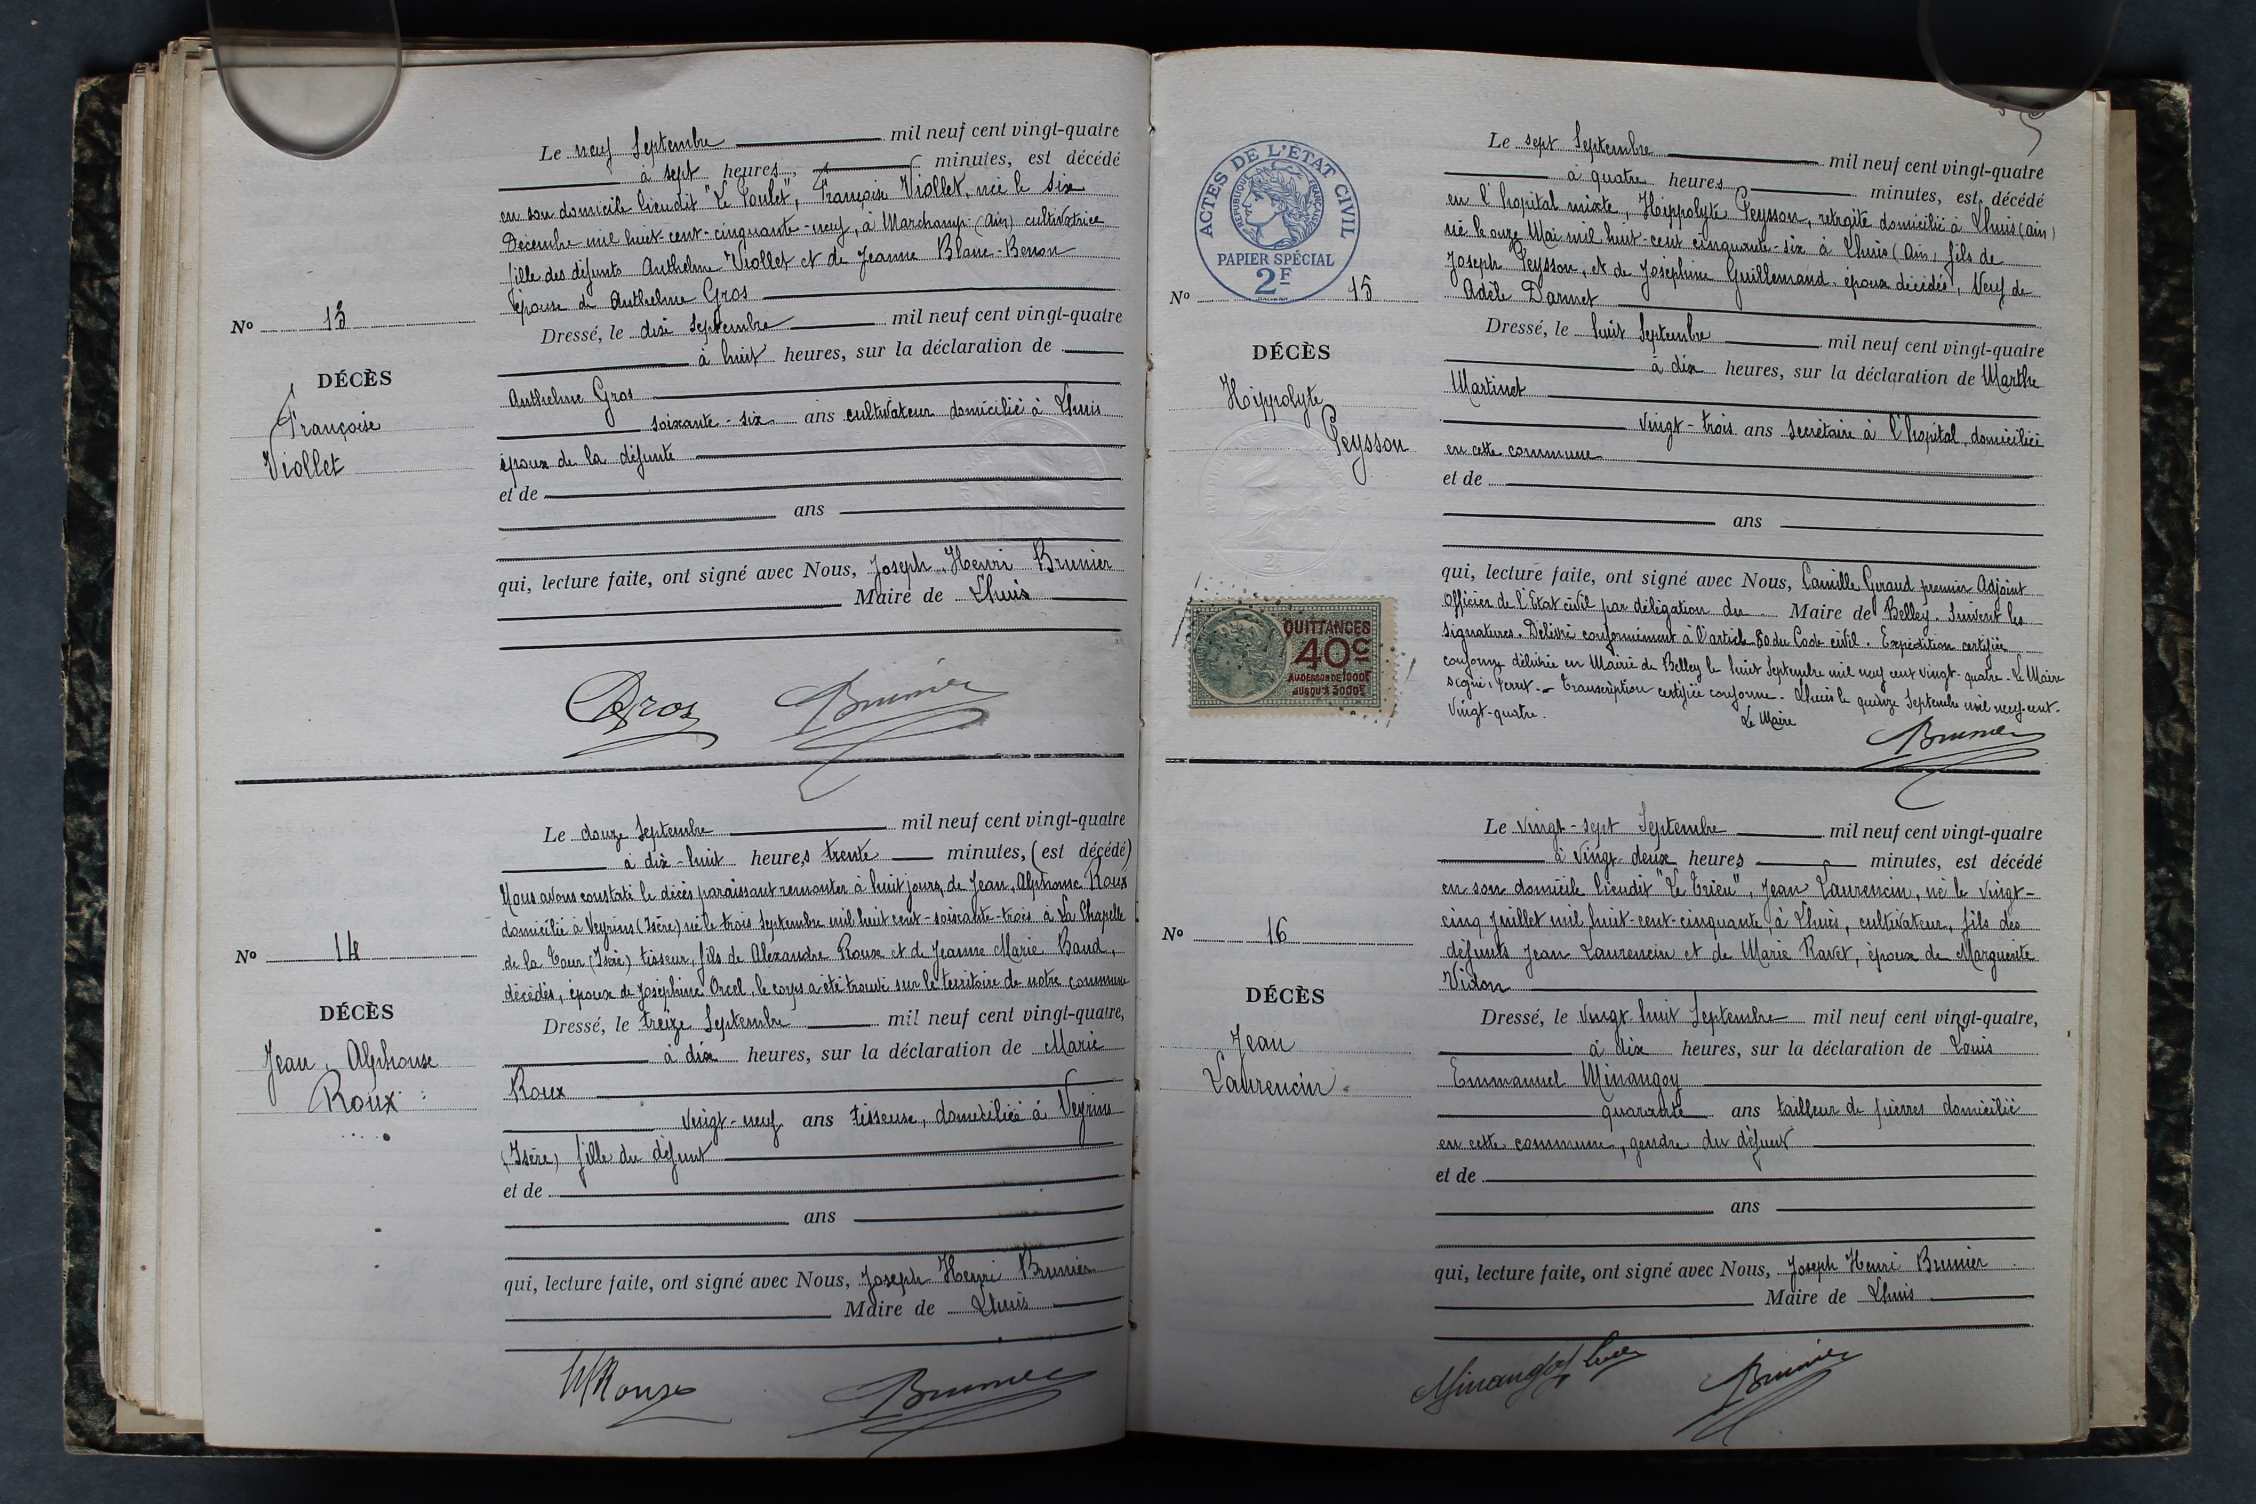 Le neuf Septembre mil neuf cent vingt-quatre
à sept heures, minutes, est décédé
en son domicile lieudit "Le Poulet", Françoise Viollet, née le six
Décembre mil huit-cent-cinquante-neuf, à Marchamp (Ain) cultivatrice
fille des défunts Anthelme Viollet et de Jeanne Blanc-Benon
épouse de Anthelme Gros
No 13
Dressé, le dix Septembre mil neuf cent vingt-quatre
à huit heures, sur la déclaration de
DÉCÈS
Anthelme Gros
Françoise
soixante-six ans cultivateur domicilié à Lhuis
Viollet
époux de la défunte
et de
ans
qui, lecture faite, ont signé avec Nous, Joseph Henri Brunier
Maire de Lhuis
Gros Brunier
Le douze Septembre mil neuf cent vingt-quatre
à dix-huit heures trente minutes, (est décédé)
Nous avons constaté le décès paraissant remonter à huit jours, de Jean, Alphonse Roux
domicilié à Veyrins (Isère) né le trois Septembre mil huit cent-soixante-trois à La Chapelle
de la Tour (Isère) tisseur, fils de Alexandre Roux et de Jeanne Marie Baud,
décédés, époux de Joséphine Orcel, le corps a été trouvé sur le territoire de notre commune
No 14
Dressé, le treize Septembre mil neuf cent vingt-quatre,
à dix heures, sur la déclaration de Marie
DÉCÈS
Roux
Jean, Alphonse
Roux
vingt-neuf ans tisseuse, domiciliée à Veyrins
(Isère) fille du défunt
et de
ans
qui, lecture faite, ont signé avec Nous, Joseph Henri Brunier
Maire de Lhuis
M Roux Brunier
ACTES DE L'ÉTAT CIVIL
RÉPUBLIQUE FRANÇAISE
PAPIER SPÉCIAL
2F
Le sept Septembre mil neuf cent vingt-quatre
à quatre heures minutes, est décédé
en l'hopital mixte, Hippolyte Peysson, retraité domicilié à Lhuis (ain)
né le onze Mai mil huit-cent cinquante-six à Lhuis (Ain) fils de
Joseph Peysson, et de Joséphine Guillemand, époux décédés, Veuf de
Adèle Darmet
No 15
Dressé, le huit Septembre mil neuf cent vingt-quatre
à dix heures, sur la déclaration de Marthe
DÉCÈS
Martinet
Hippolyte
Peysson
vingt-trois ans secrétaire à l'hopital, domiciliée
en cette commune
et de
ans
qui, lecture faite, ont signé avec Nous, Camille Giraud premier Adjoint
Officier de l'Etat civil par délégation du Maire de Belley. Suivent les
signatures. Délivré conformément à l'article 80 du Code civil. Expédition certifiée
conforme délivrée en Mairie de Belley le huit Septembre mil neuf cent vingt-quatre. Le Maire
signé: Perret. - Transcription certifiée conforme. Lhuis le quinze Septembre mil neuf-cent-
vingt-quatre. Le Maire
Brunier
QUITTANCES
40c
AU DESSUS DE 1000F
JUSQU'A 3000F
Le vingt-sept Septembre mil neuf cent vingt-quatre
à vingt-deux heures minutes, est décédé
en son domicile lieudit "Le Trieu", Jean Laurencin, né le vingt-
cinq Juillet mil huit-cent-cinquante, à Lhuis, cultivateur, fils des
défunts Jean Laurencin et de Marie Ravet, époux de Marguerite
Vidon
No 16
Dressé, le vingt huit Septembre mil neuf cent vingt-quatre,
à dix heures, sur la déclaration de Louis
DÉCÈS
Emmanuel Minangoy
Jean
Laurencin
quarante ans tailleur de pierres domicilié
en cette commune, gendre du défunt
et de
ans
qui, lecture faite, ont signé avec Nous, Joseph Henri Brunier
Maire de Lhuis
Minangoy Brunier